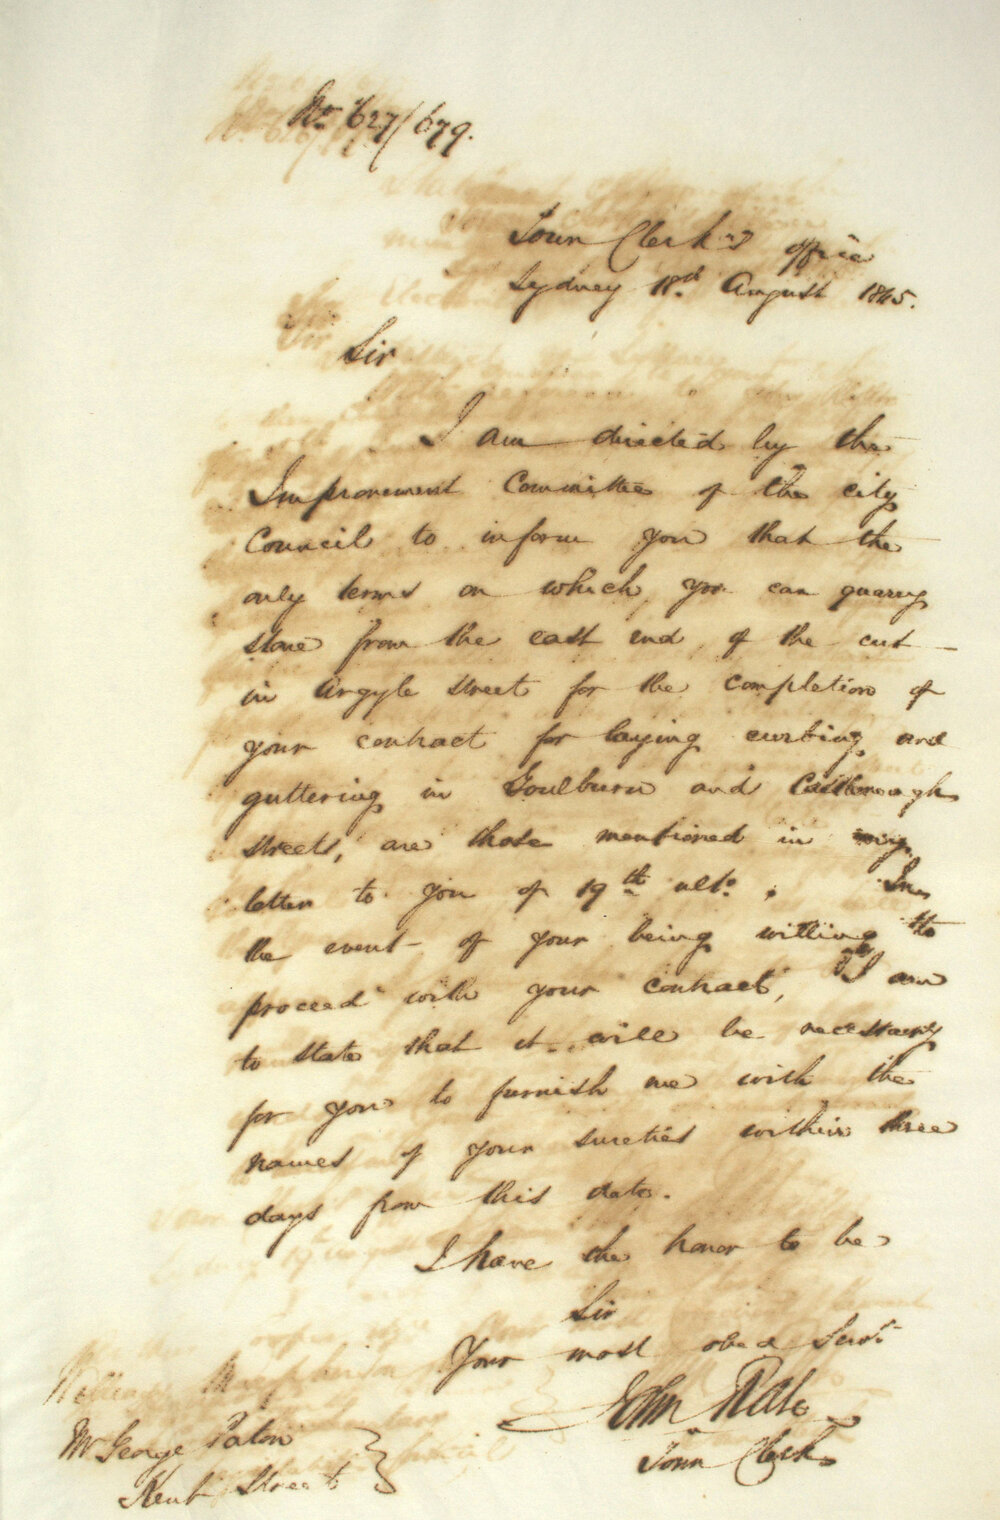 No 627/679.
Town Clerk's office
Sydney 18th August 1845.
Sir
I am directed by the
Improvement Committee of the city
Council to inform you that the
only terms on which you can quarry
stone from the east end of the cut
in Argyle street for the completion of
your contract for laying curbing and
guttering in Goulburn and Castlereagh
streets, are those mentioned in my
letter to you of 19th ulto. In
the event of your being willing to
proceed with your contract, I am
to state that it will be necessary
for you to furnish me with the
names of your sureties within three
days from this date.
I have the honor to be
Sir
Your most obed Servt
John
Town Clerk
Mr George Paton
Kent Street